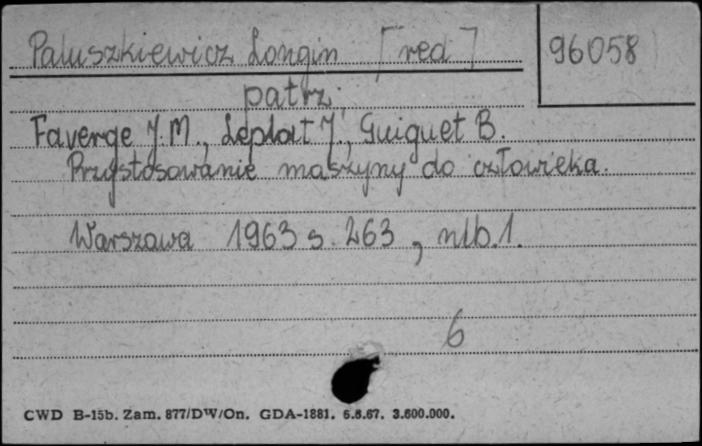 Paluszkiewicz Longin [red] 96058
patrz:
Faverge J.M., Leplat J., Guiguet B.
Przystosowanie maszyny do człowieka.
Warszawa 1963 s. 263, nlb.1.
6
CWD B-15b. Zam. 877/DW/On. GDA-1881. 6.6.67. 3.600.000.